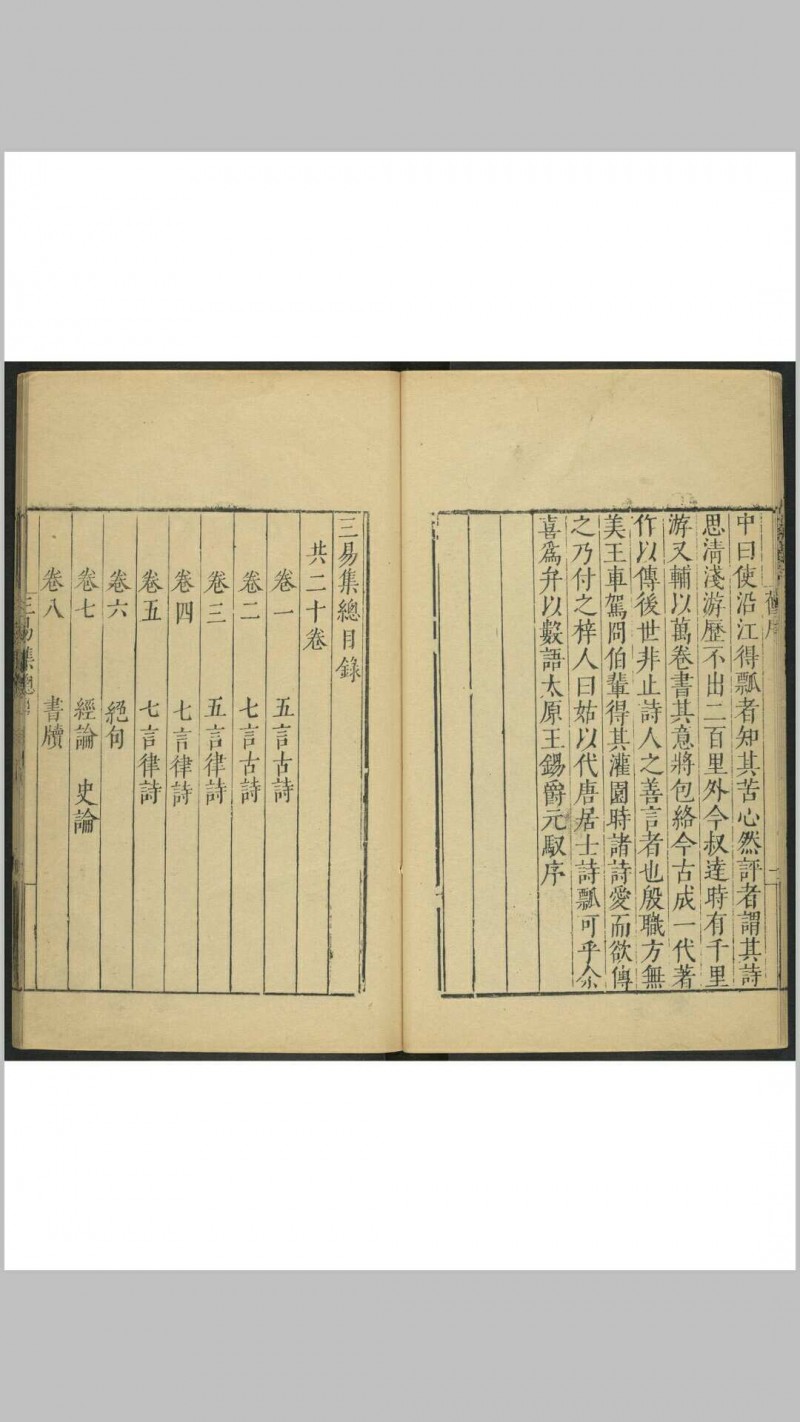 舊序
一
中曰使沿江得瓢者知其苦心然評者謂其詩
思清淺游歷不出二百里外今叔達時有千里
游又輔以萬卷書其意將包絡今古成一代著
作以傳後世非止詩人之善言者也殷職方無
美王車駕冏伯輩得其灌園時諸詩愛而欲傳
之乃付之梓人曰姑以代唐居士詩瓢可乎余
喜爲弁以數語太原王錫爵元馭序
三易集總目錄
共二十卷
卷一 五言古詩
卷二 七言古詩
卷三 五言律詩
卷四 七言律詩
卷五 七言律詩
卷六 絕句
卷七 經論 史論
卷八 書牘
三易集總